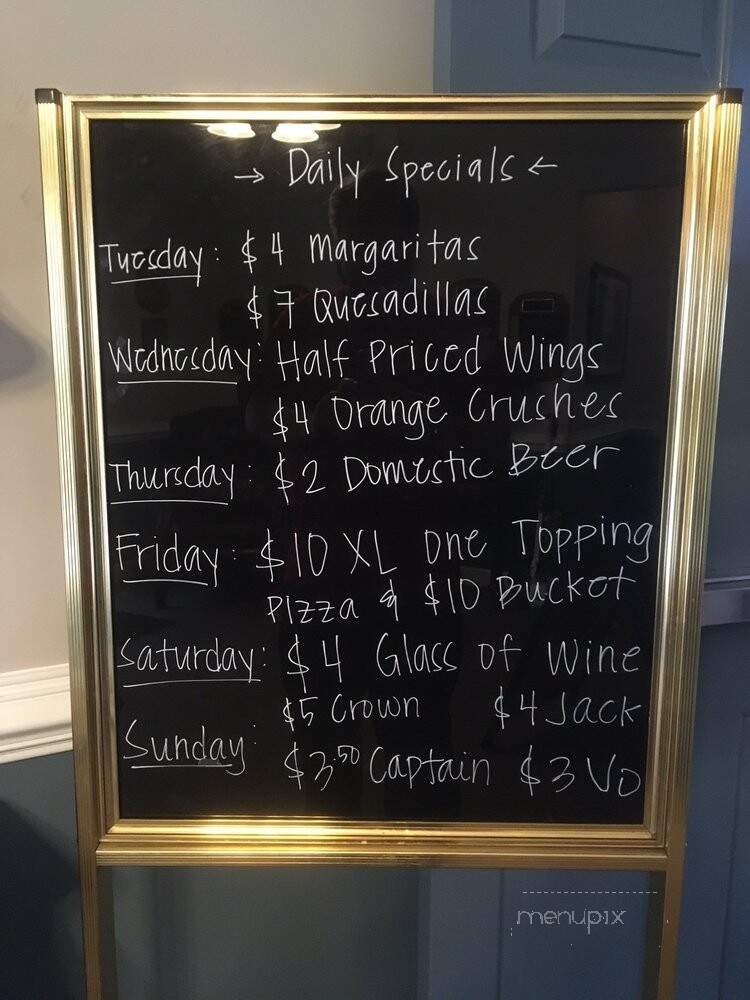 → Daily Specials ←
Tuesday: $4 Margaritas
$7 Quesadillas
Wednesday: Half Priced Wings
$4 Orange Crushes
Thursday: $2 Domestic Beer
Friday: $10 XL One Topping
Pizza & $10 Bucket
Saturday: $4 Glass of Wine
$5 Crown $4 Jack
Sunday: $3.50 Captain $3 VO
menupix